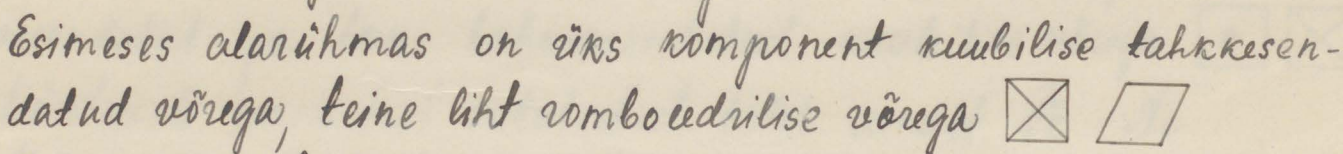 Esimeses alarühmas on üks komponent kuubilise tahkkesen-
datud võrega, teine liht romboeedrilise võrega